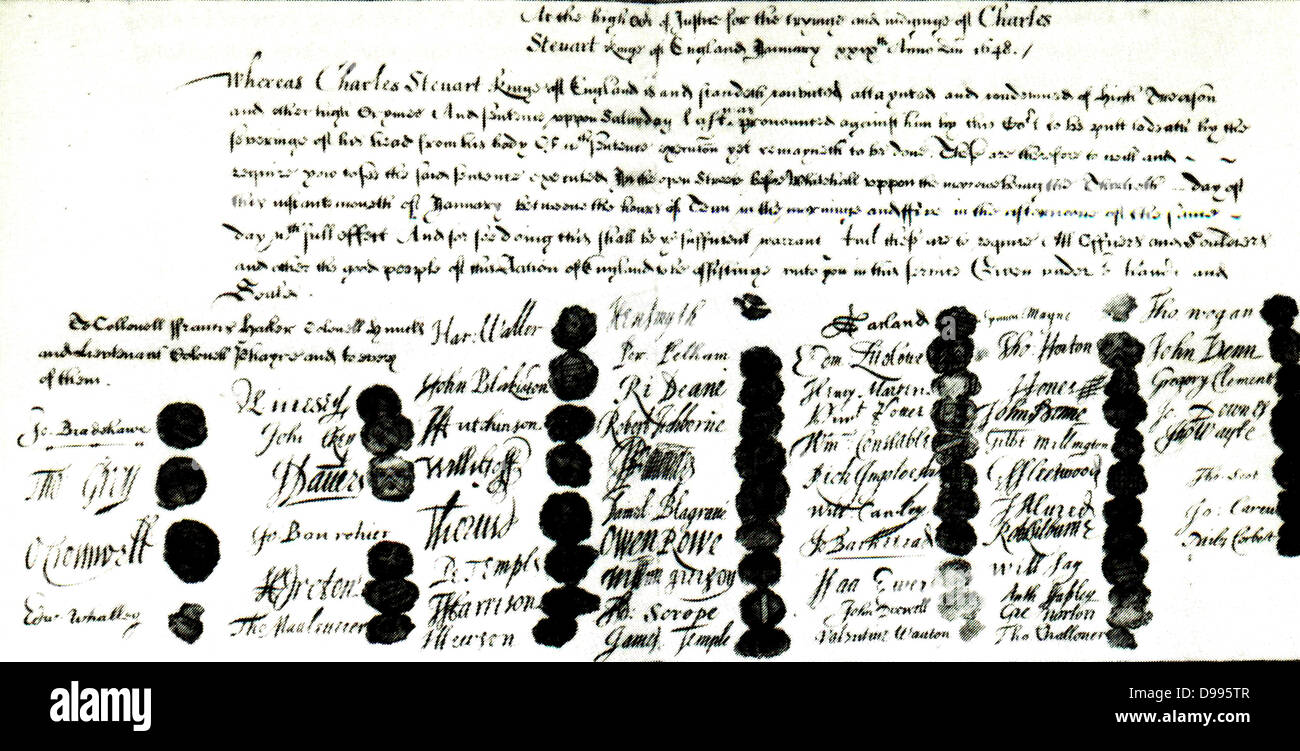 At the high Cort of Justice for the tryinge and iudginge of Charles
Steuart Kinge of England January xxixth Anno Dni 1648./
Whereas Charles Steuart Kinge of England is and standeth convicted attaynted and condemned of High Treason
and other high Crymes And sentence uppon Saturday last was pronounced against him by this Cort to be putt to death by the
severinge of his head from his body Of wch sentence execucon yet remayneth to be done These are therefore to will and
require you to see the said sentence executed In the open Streete before Whitehall uppon the morrowe being the Thirtieth day of
this instante moneth of January betweene the houres of Tenn in the morninge and ffive in the afternoone of the same
day wth full effect And for soe doing this shall be yor sufficient warrant And these are to require All Officers and Souldiers
and other the good people of this Nation of England to be assistinge unto you in this service Given under hands and
Seales
To Collonell Francis Hacker Colonell Huncks
and Lieutenant Colonell Phayre and to every
of them.
Jo. Bradshawe
Tho. Grey
O Cromwell
Edw. Whalley
M Livesey
John Okey
J Danvers
Jo Bourchier
H Ireton
Tho Mauleverer
Har. Waller
John Blakiston
J Hutchinson
Willi Goff
Tho Pride
P Temple
T Harrison
J Hewson
Hen Smyth
Per. Pelham
Ri Deane
Robert Tichborne
H Edwardes
Daniel Blagrave
Owen Rowe
William Purefoy
Ad. Scrope
James Temple
A Garland
Edm. Ludlowe
Henry Marten
Vinct Potter
Wm. Constable
Rich Ingoldesby
Will Cawley
Jo Barkstead
Isaa Ewer
John Dixwell
Valentine Wauton
Symon Mayne
Tho Horton
J Jones
John Moore
Gilbt Millington
G Fleetwood
J Alured
Rob Lilburne
Will Say
Anth Stapley
Gre Norton
Tho Challoner
Tho Wogan
John Venn
Gregory Clement
Jo Downes
Tho Wayte
Tho Scot
Jo Carew
Miles Corbet
a
alamy
Image ID: D995TR
www.alamy.com